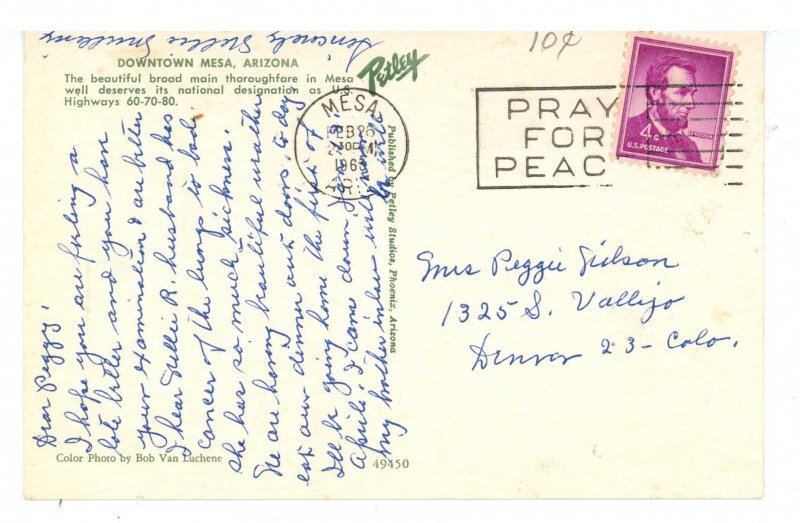 10¢
DOWNTOWN MESA, ARIZONA
The beautiful broad main thoroughfare in Mesa
well deserves its national designation as U.S.
Highways 60-70-80.
Petley
MESA
FEB 26
PM
196
ARIZ
PRAY
FOR
PEAC
4¢
LINCOLN
U.S. POSTAGE
Published by Petley Studios, Phoenix, Arizona
Dear Peggy!
I hope you are feeling a
lots better and you have
your examination & are better
I hear R. husband has
cancer of the lungs so bad.
she has so much sickness.
We are having beautiful weather
eat our dinner out doors to day
Ill be going home the first of
April. I came down
my brother in law
Sincerely
Mrs Peggie Gilson
1325 S. Vallejo
Denver 23 - Colo.
Color Photo by Bob Van Luchene
49450